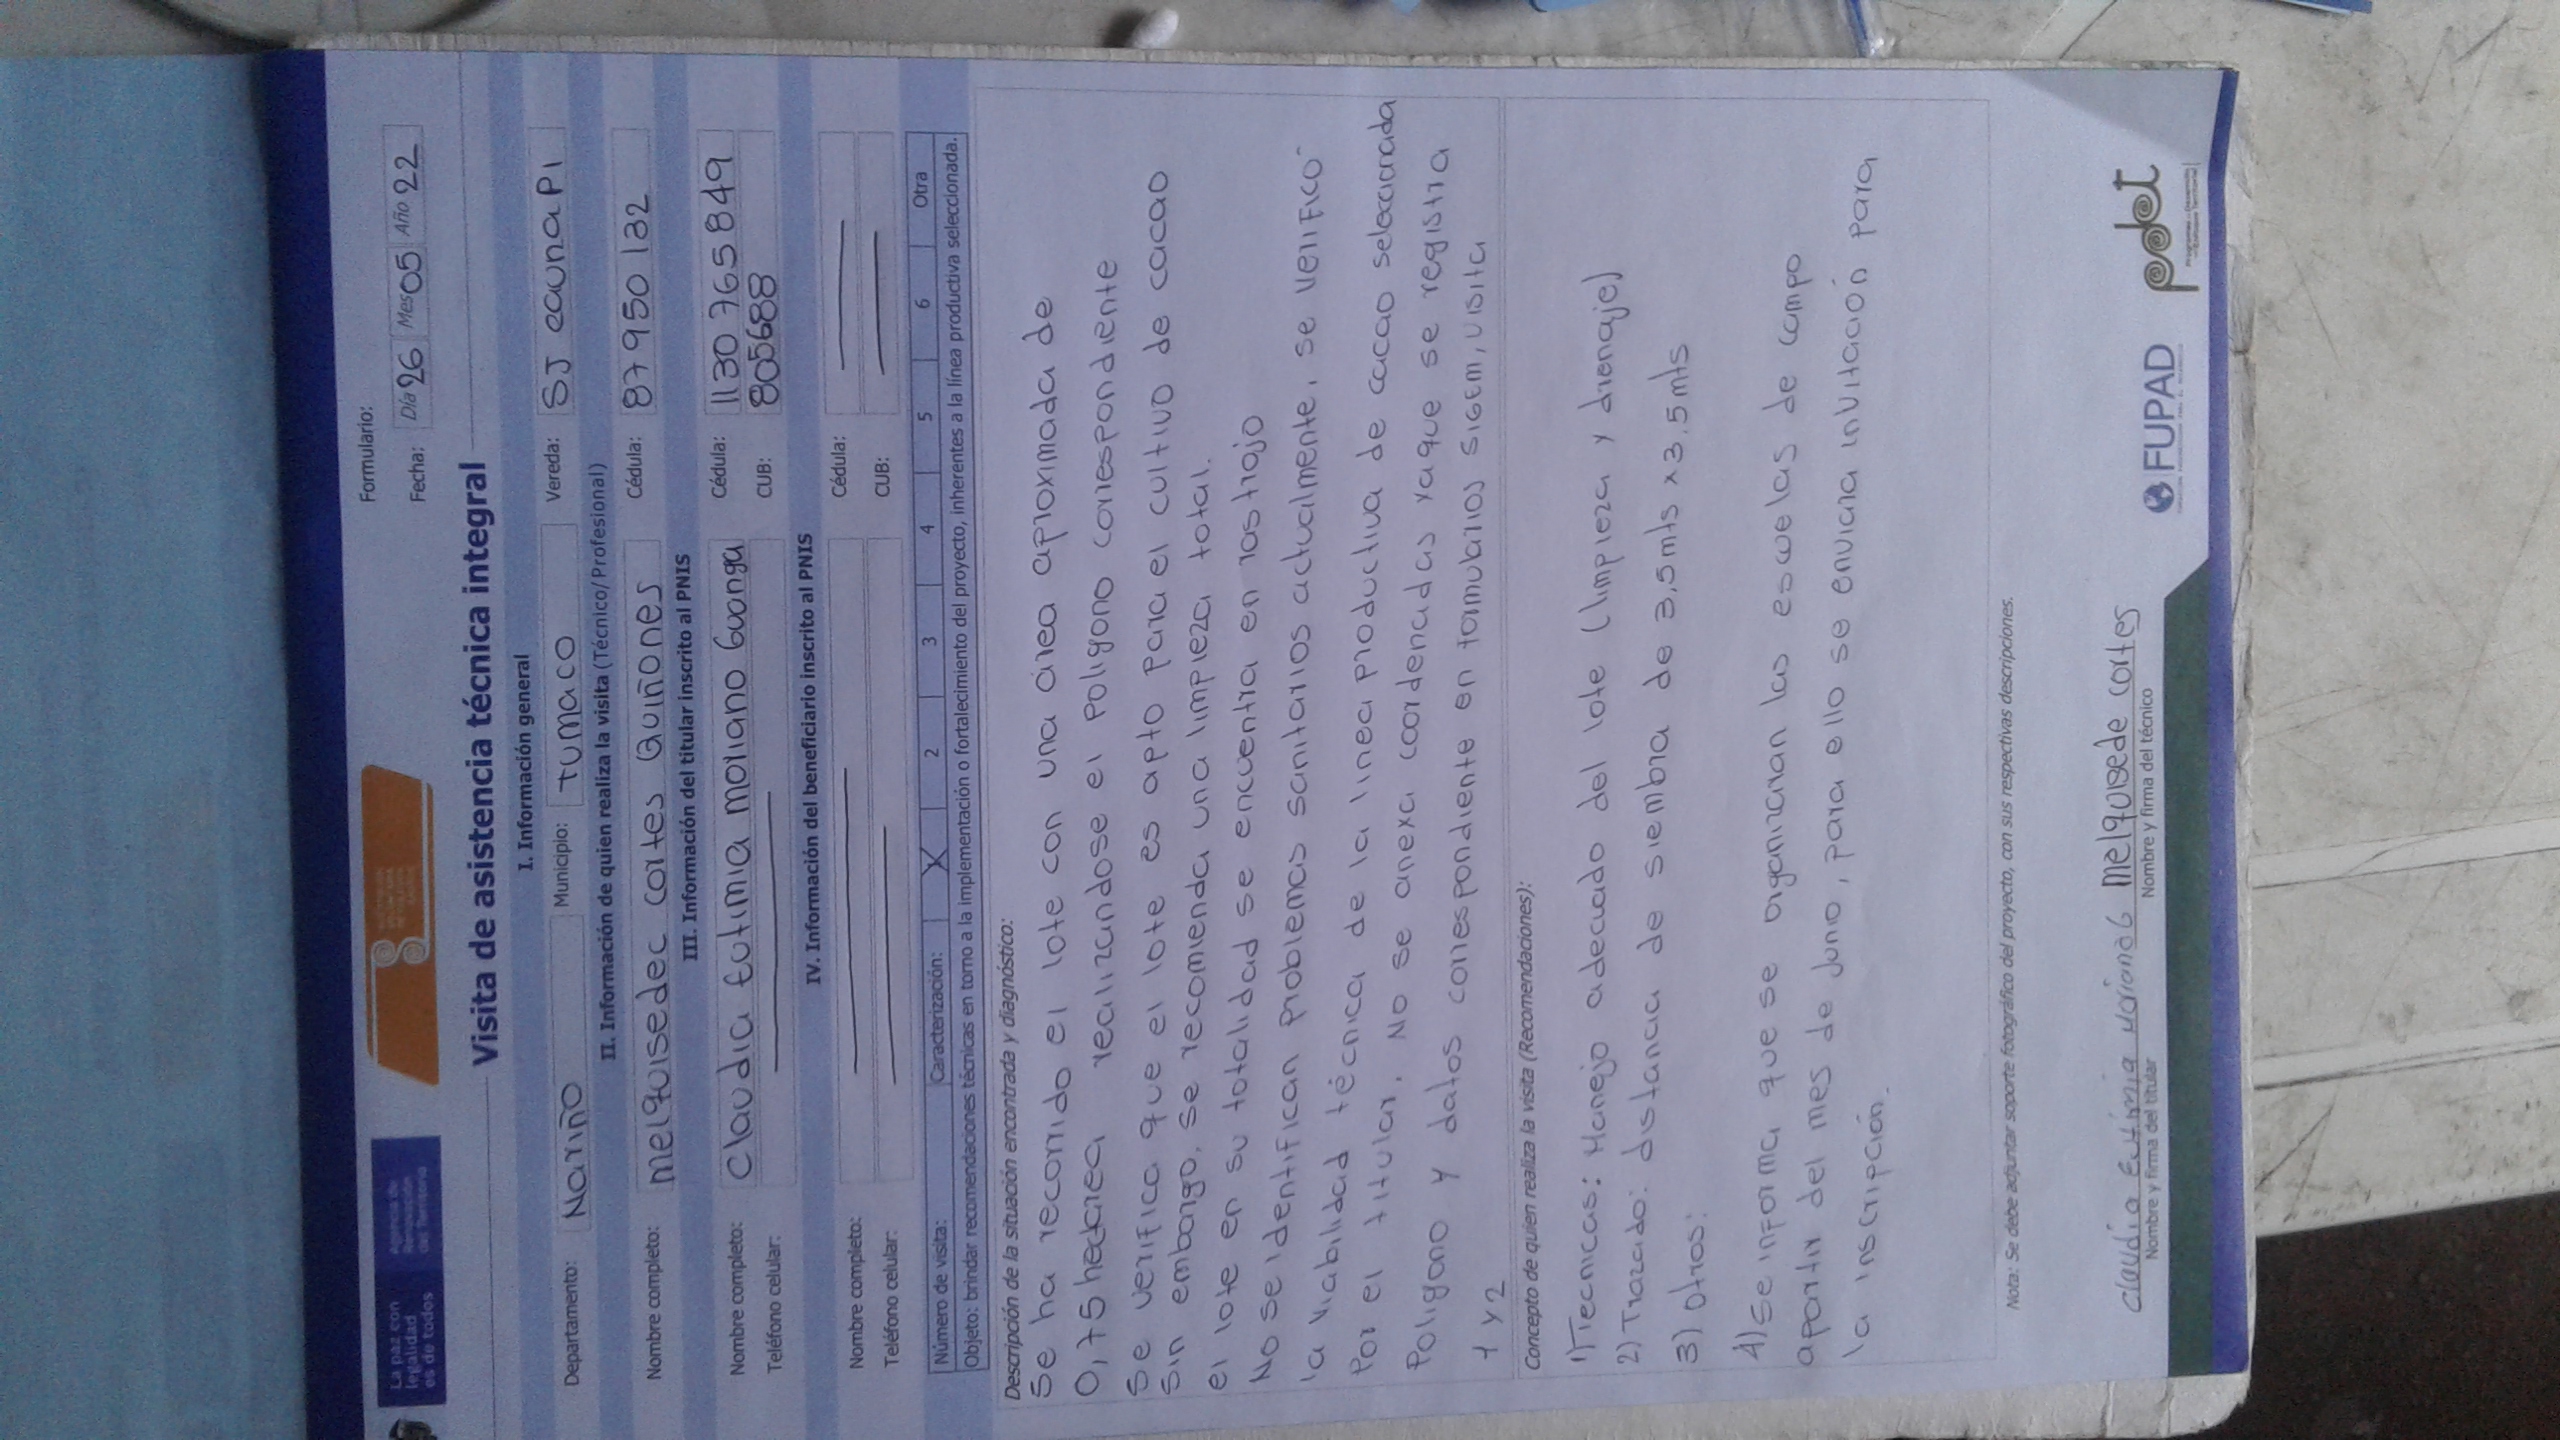 La paz con
legalidad
es de todos
Agencia de
Renovación
del Territorio
Formulario:
Fecha: Día 26 Mes 05 Año 22
Visita de asistencia técnica integral
I. Información general
Departamento: Nariño Municipio: tumaco Vereda: SJ caunapi
II. Información de quien realiza la visita (Técnico/Profesional)
Nombre completo: melquisedec cortes Quiñones Cédula: 87950132
III. Información del titular inscrito al PNIS
Nombre completo: Claudia Eutimia moriano Guanga Cédula: 1130765849
Teléfono celular: CUB: 805688
IV. Información del beneficiario inscrito al PNIS
Nombre completo: Cédula:
Teléfono celular: CUB:
Número de visita: Caracterización: X 2 3 4 5 6 Otra
Objeto: brindar recomendaciones técnicas en torno a la implementación o fortalecimiento del proyecto, inherentes a la línea productiva seleccionada.
Descripción de la situación encontrada y diagnóstico:
Se ha recorrido el lote con una área aproximada de
0,75 hectarea realizandose el Poligono correspondiente
Se verifica que el lote es apto para el cultivo de cacao
Sin embargo, se recomienda una limpieza total.
el lote en su totalidad se encuentra en rastrojo
No se identifican problemas sanitarios actualmente, se verificó
la viabilidad técnica de la linea productiva de cacao seleccionada
Por el titular. No se anexa coordenadas yaque se registra
Poligono y datos correspondiente en formularios sigem, visita
1 y 2
Concepto de quien realiza la visita (Recomendaciones):
1) Tecnicas: Manejo adecuado del lote (limpieza y drenaje)
2) Trazado: distancia de siembra de 3,5mts x 3,5mts
3) otros:
4) Se informa que se organizaran las escuelas de campo
apartir del mes de Junio, para ello se enviara invitación para
la inscripción.
Nota: Se debe adjuntar soporte fotográfico del proyecto, con sus respectivas descripciones.
claudia Eutimia Moriano G melquisede cortes
Nombre y firma del titular Nombre y firma del técnico
FUPAD
pdet